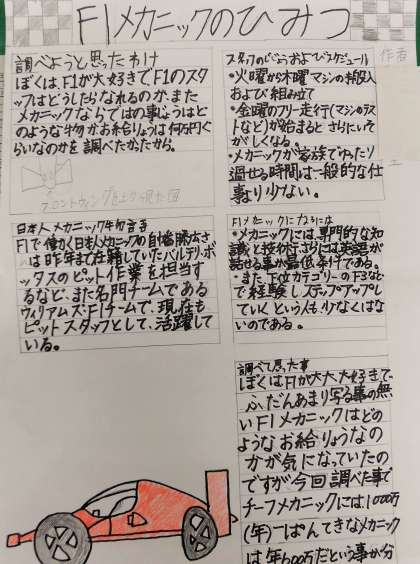 F1メカニックのひみつ
調べようと思ったわけ
ぼくは、F1が大好きでF1のスタ
ッフはどうしたらなれるのか、また
メカニックならではの事じょうはど
のような物かお給りょうは何万円ぐ
らいなのかを調べたかったから。
フロントウィングを上から見た図
スタッフのじょうおよびスケジュール
・火曜から木曜 マシンの搬入
および組み立て
・金曜のフリー走行(マシンのテスト
など)が始まるとさらにいそ
がしくなる。
・メカニックが家族でゆったり
過せる時間は一般的な仕
事より少ない。
作者
日本人メカニック
F1で働く日本人メカニックの白幡勝広さ
んは昨年まで在籍していたバルテリ・ボ
ッタスのピット作業を担当す
るなど、また名門チームである
ウィリアムズF1チームで、現在も
ピットスタッフとして、活躍して
いる。
F1メカニックになるには
・メカニックには、専門的な知
識と技術さらには英語が
話せる事が最低条件である。
・また下位カテゴリーのF3など
で経験しステップアップして
いくという人も少なくはな
いのである。
調べて思た事
ぼくはF1が大、大、大好きで
ふだんあまり写る事の無
いF1メカニックはどの
ようなお給りょうなの
かが気になっていたの
ですが今回調べた事で
チーフメカニックには1000万
(年)一ぱんてきなメカニック
は年600万だという事が分